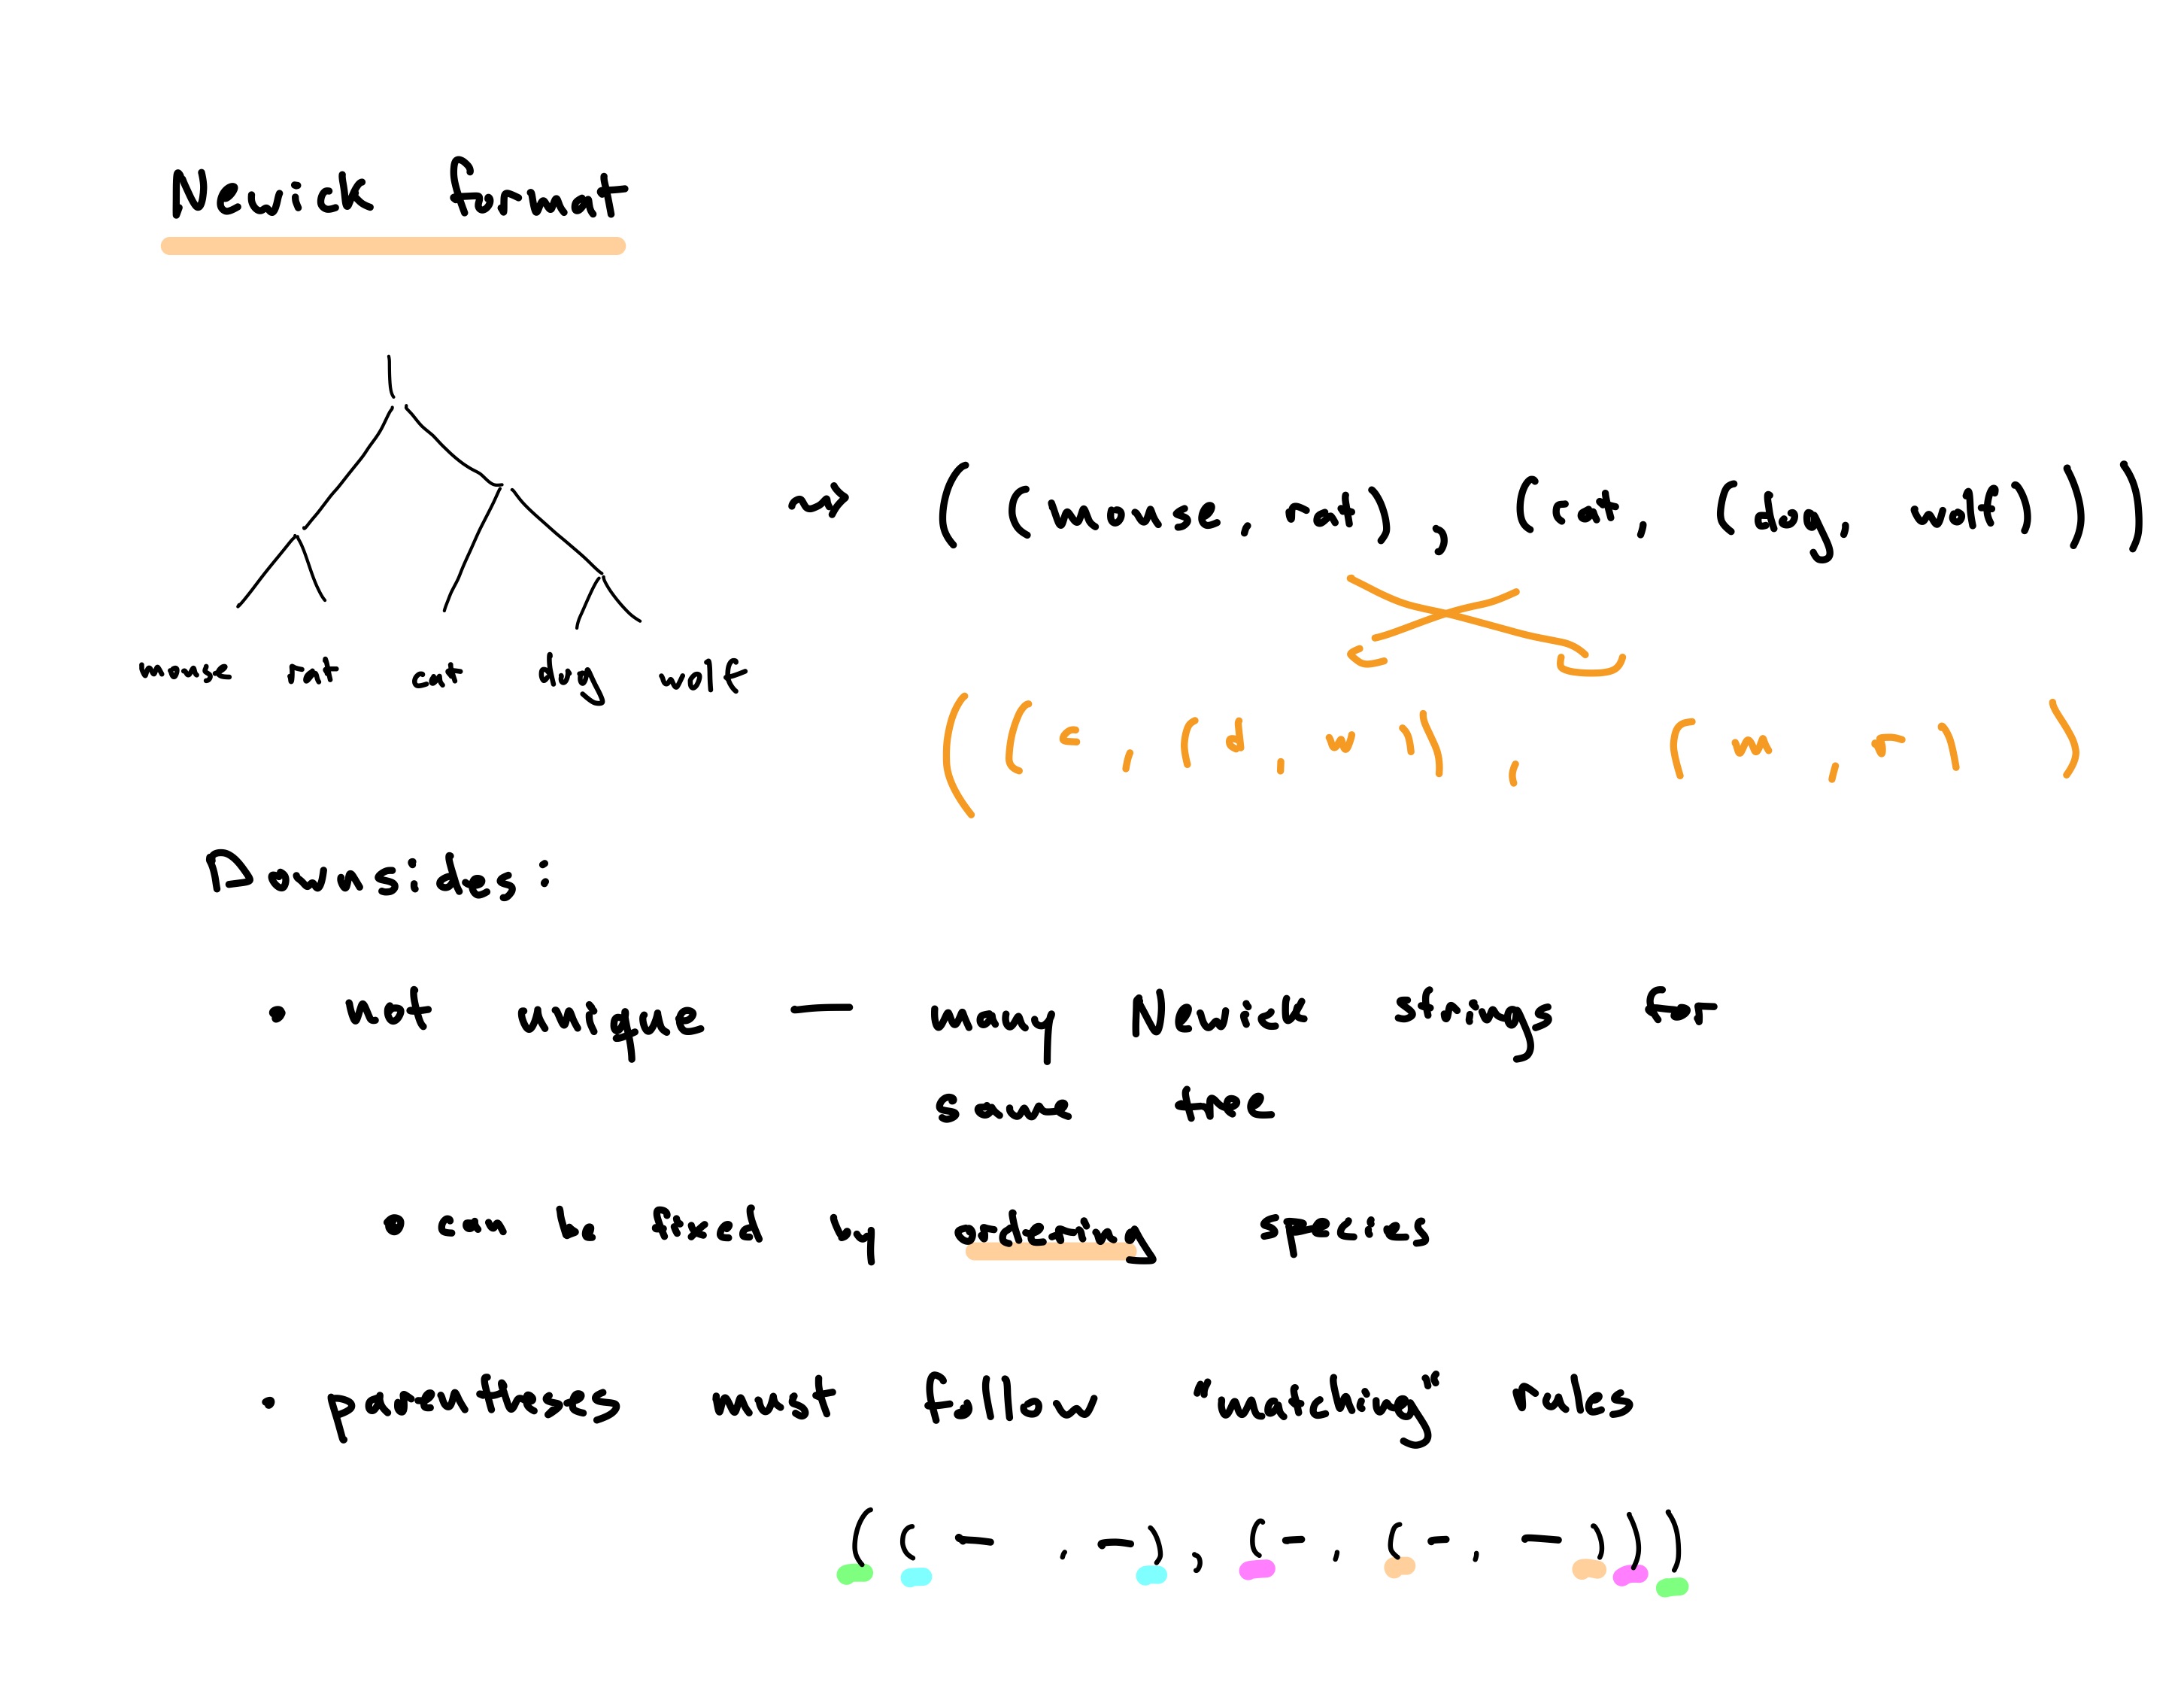 Newick format
⇝ ( (mouse, rat), (cat, (dog, wolf)))
mouse rat cat dog wolf
((c, (d, w)), (m, r))
Downsides:
• not unique — many Newick strings for
same tree
∘ can be fixed by ordering species
• parentheses must follow "matching" rules
((–, –), (–, (–, –)))